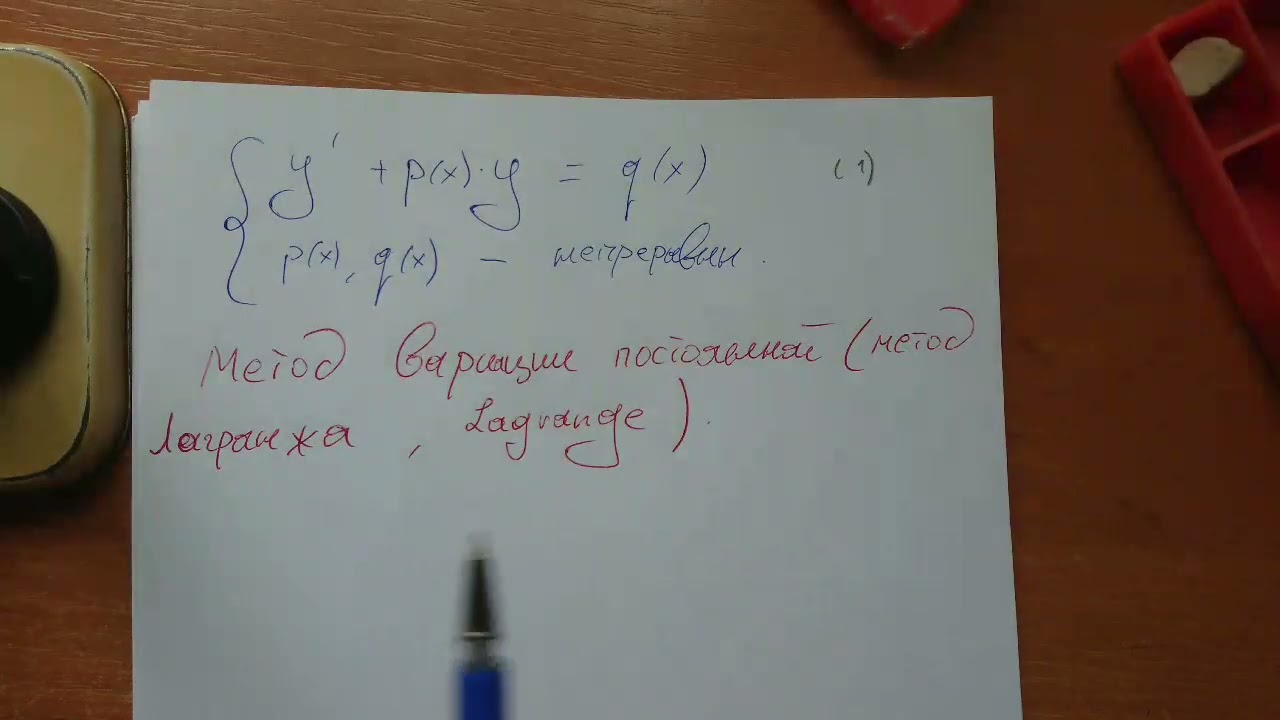 y' + p(x)·y = q(x) (1)
p(x), q(x) – непрерывн.
Метод вариации постоянной (метод
Лагранжа, Lagrange).